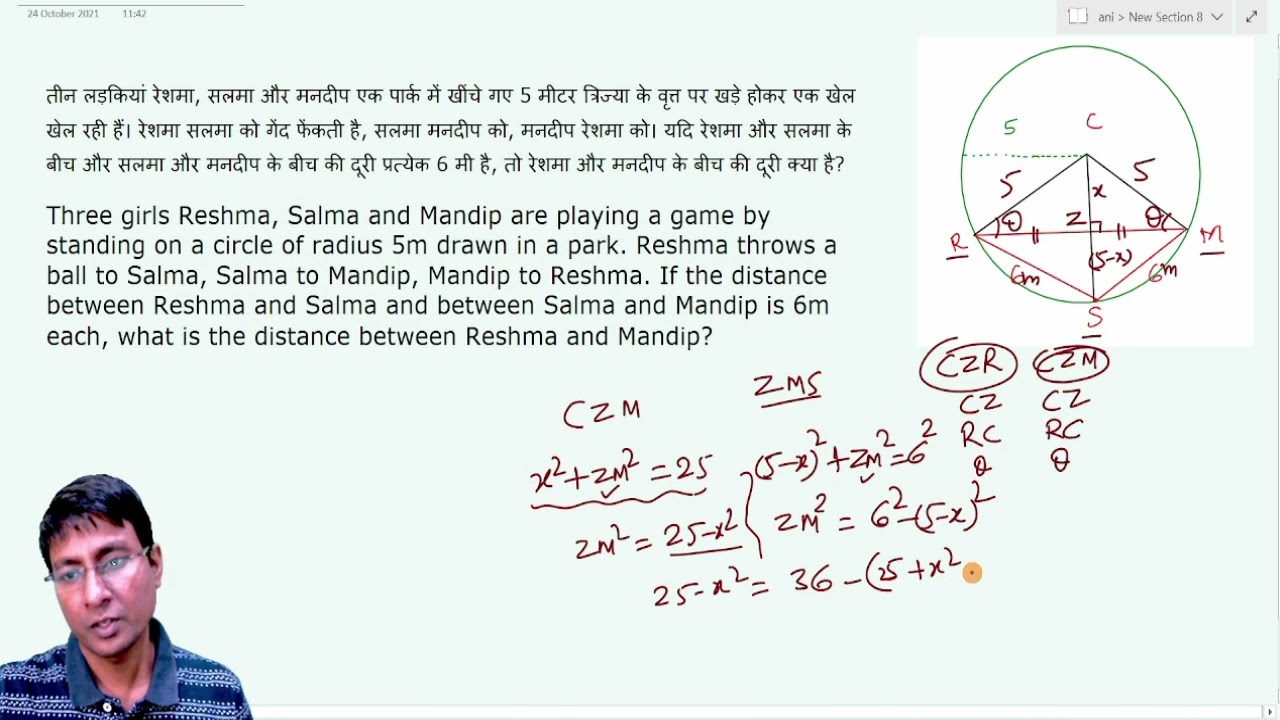 24 October 2021 11:42
ani > New Section 8
तीन लड़कियां रेशमा, सलमा और मनदीप एक पार्क में खींचे गए 5 मीटर त्रिज्या के वृत्त पर खड़े होकर एक खेल
खेल रही हैं। रेशमा सलमा को गेंद फेंकती है, सलमा मनदीप को, मनदीप रेशमा को। यदि रेशमा और सलमा के
बीच और सलमा और मनदीप के बीच की दूरी प्रत्येक 6 मी है, तो रेशमा और मनदीप के बीच की दूरी क्या है?
Three girls Reshma, Salma and Mandip are playing a game by
standing on a circle of radius 5m drawn in a park. Reshma throws a
ball to Salma, Salma to Mandip, Mandip to Reshma. If the distance
between Reshma and Salma and between Salma and Mandip is 6m
each, what is the distance between Reshma and Mandip?
5 C
5 x 5
θ Z θ
R M
6m (5-x) 6m
S
CZR CZM
CZ CZ
RC RC
θ θ
CZM ZMS
x²+ZM²=25 (5-x)²+ZM²=6²
ZM²=25-x² ZM²=6²-(5-x)²
25-x²=36-(25+x²